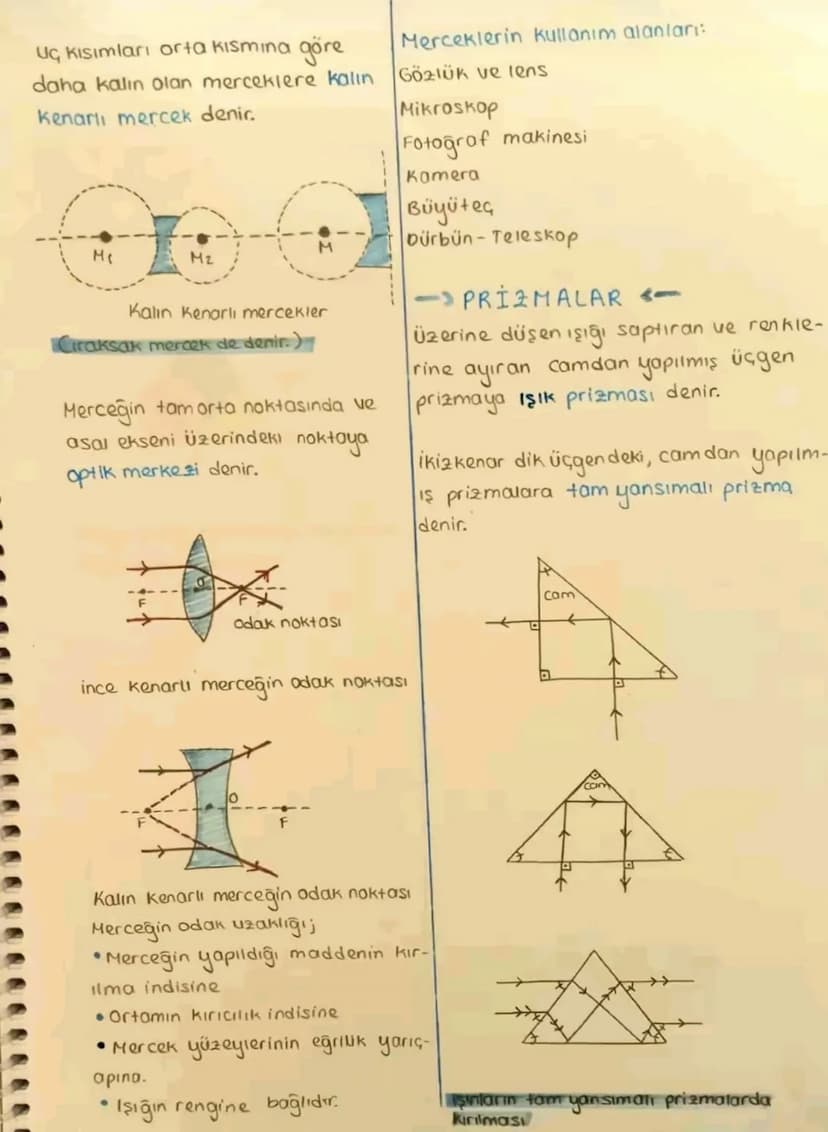 Uç kısımları orta kısmına göre
daha kalın olan merceklere kalın
kenarlı mercek denir.
M1
M2
M
Kalın kenarlı mercekler
(Iraksak mercek de denir.)
Merceğin tam orta noktasında ve
asal ekseni üzerindeki noktaya
optik merkezi denir.
F
O
F
odak noktası
ince kenarlı merceğin odak noktası
O
F
F
Kalın kenarlı merceğin odak noktası
Merceğin odak uzaklığı;
• Merceğin yapıldığı maddenin kır-
ılma indisine
• Ortamın kırıcılık indisine
• Mercek yüzeylerinin eğrilik yarıç-
apına.
• Işığın rengine bağlıdır.
Merceklerin kullanım alanları:
Gözlük ve lens
Mikroskop
Fotoğraf makinesi
Kamera
Büyüteç
Dürbün - Teleskop
→ PRİZMALAR ←
Üzerine düşen ışığı saptıran ve renkle-
rine ayıran camdan yapılmış üçgen
prizmaya ışık prizması denir.
İkizkenar dik üçgendeki, camdan yapılm-
ış prizmalara tam yansımalı prizma
denir.
cam
cam
Işınların tam yansımalı prizmalarda
kırılması